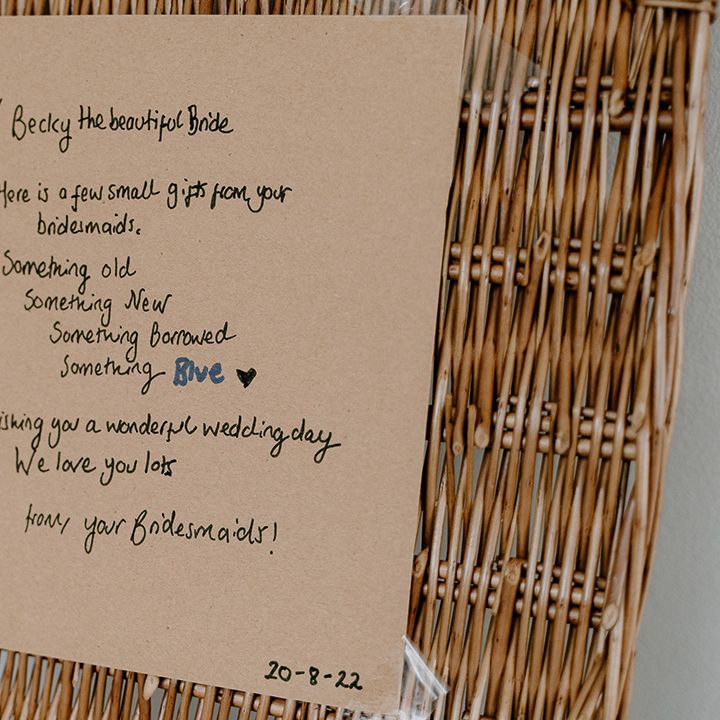 Becky the beautiful Bride
Here is a few small gifts from your
bridesmaids.
Something old
Something New
Something Borrowed
Something Blue ♥
ishing you a wonderful wedding day
We love you lots
from your Bridesmaids!
20-8-22